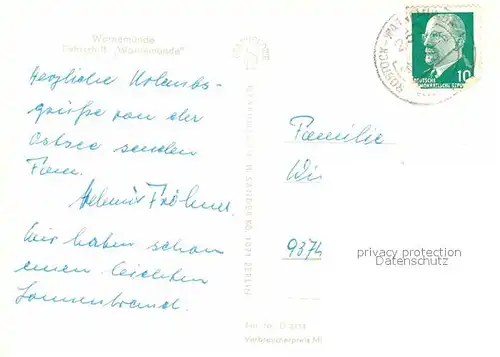 Warnemünde
Fährschiff "Warnemünde"
Herzliche Urlaubs-
grüße von der
Ostsee senden
Fam.
Helmut Fröhner.
Wir haben schon
einen leichten
Sonnenbrand.
ROSTOCK-WARNEMÜNDE
10
DEUTSCHE
DEMOKRATISCHE REPUBLIK
Familie
Wir
9374
privacy protection
Datenschutz
1071 BERLIN
Verbraucherpreis MDN